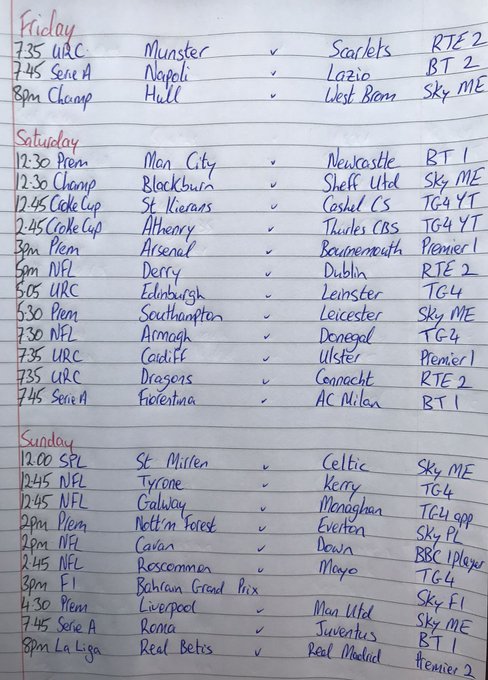 Friday
7.35 URC Munster v Scarlets RTE 2
7.45 Serie A Napoli v Lazio BT 2
8pm Champ Hull v West Brom Sky ME
Saturday
12.30 Prem Man City v Newcastle BT 1
12.30 Champ Blackburn v Sheff Utd Sky ME
12.45 Croke Cup St Kierans v Cashel CS TG4 YT
2.45 Croke Cup Athenry v Thurles CBS TG4 YT
3pm Prem Arsenal v Bournemouth Premier 1
5pm NFL Derry v Dublin RTE 2
5.05 URC Edinburgh v Leinster TG4
5.30 Prem Southampton v Leicester Sky ME
7.30 NFL Armagh v Donegal TG4
7.35 URC Cardiff v Ulster Premier 1
7.35 URC Dragons v Connacht RTE 2
7.45 Serie A Fiorentina v AC Milan BT 1
Sunday
12.00 SPL St Mirren v Celtic Sky ME
12.45 NFL Tyrone v Kerry TG4
12.45 NFL Galway v Monaghan TG4 app
2pm Prem Nott'm Forest v Everton Sky PL
2pm NFL Cavan v Down BBC iplayer
2.45 NFL Roscommon v Mayo TG4
3pm F1 Bahrain Grand Prix Sky F1
4.30 Prem Liverpool v Man Utd Sky ME
7.45 Serie A Roma v Juventus BT 1
8pm La Liga Real Betis v Real Madrid Premier 2